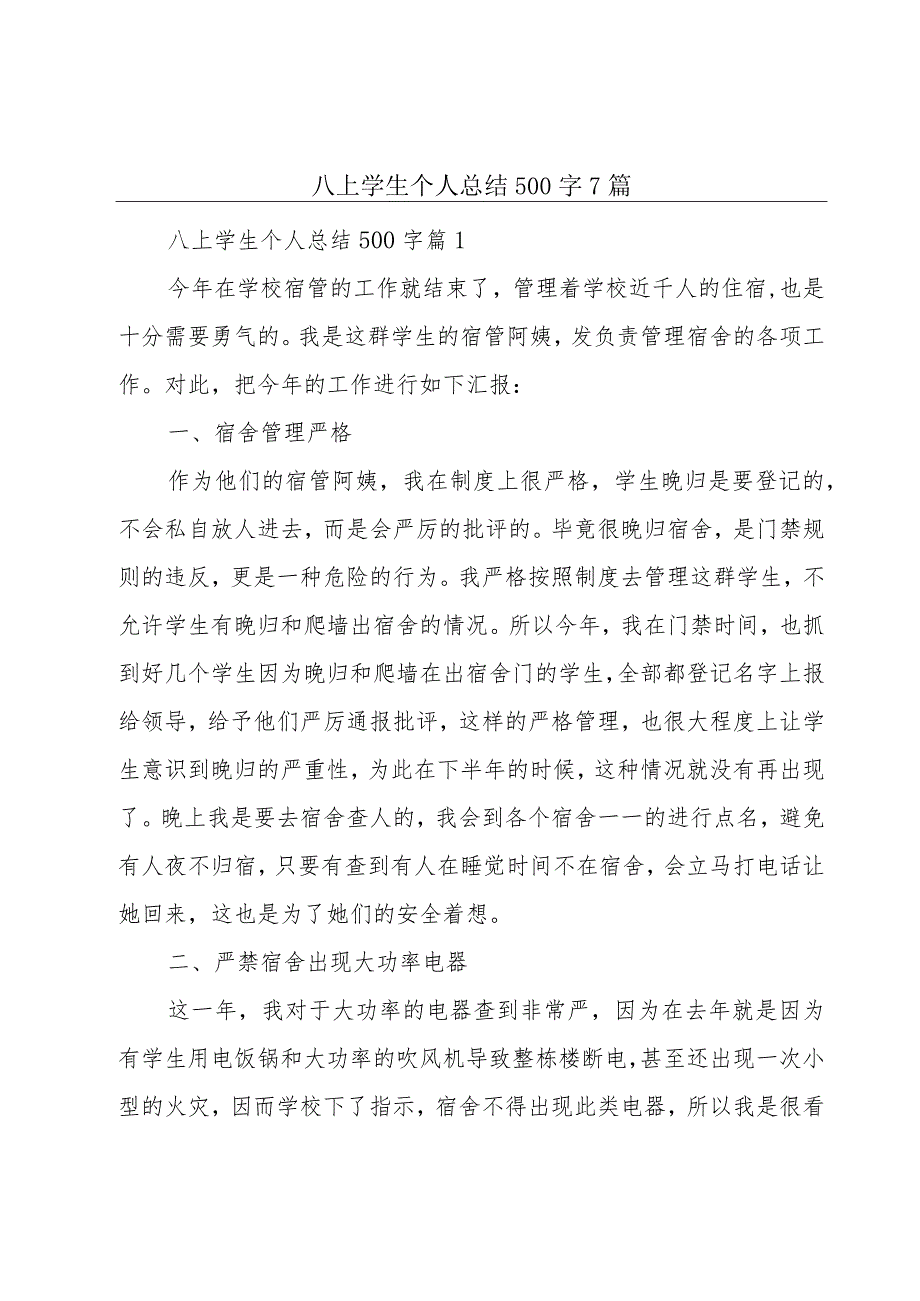 八上学生个人总结500字7篇
八上学生个人总结500字篇1
今年在学校宿管的工作就结束了，管理着学校近千人的住宿,也是
十分需要勇气的。我是这群学生的宿管阿姨，发负责管理宿舍的各项工
作。对此，把今年的工作进行如下汇报：
一、宿舍管理严格
作为他们的宿管阿姨，我在制度上很严格，学生晚归是要登记的，
不会私自放人进去，而是会严厉的批评的。毕竟很晚归宿舍，是门禁规
则的违反，更是一种危险的行为。我严格按照制度去管理这群学生，不
允许学生有晚归和爬墙出宿舍的情况。所以今年，我在门禁时间，也抓
到好几个学生因为晚归和爬墙在出宿舍门的学生，全部都登记名字上报
给领导，给予他们严厉通报批评，这样的严格管理，也很大程度上让学
生意识到晚归的严重性，为此在下半年的时候，这种情况就没有再出现
了。晚上我是要去宿舍查人的，我会到各个宿舍一一的进行点名，避免
有人夜不归宿，只要有查到有人在睡觉时间不在宿舍，会立马打电话让
她回来，这也是为了她们的安全着想。
二、严禁宿舍出现大功率电器
这一年，我对于大功率的电器查到非常严，因为在去年就是因为
有学生用电饭锅和大功率的吹风机导致整栋楼断电，甚至还出现一次小
型的火灾，因而学校下了指示，宿舍不得出现此类电器，所以我是很看